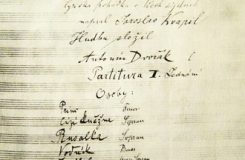 lyrická pohádka o třech dějstvích
napsal Jaroslav Kvapil
Hudbu složil
Antonín Dvořák
Partitura I. jednání
Osoby:
Princ Tenor
Cizí kněžna Sopran
Rusalka Sopran
Vodník Bass